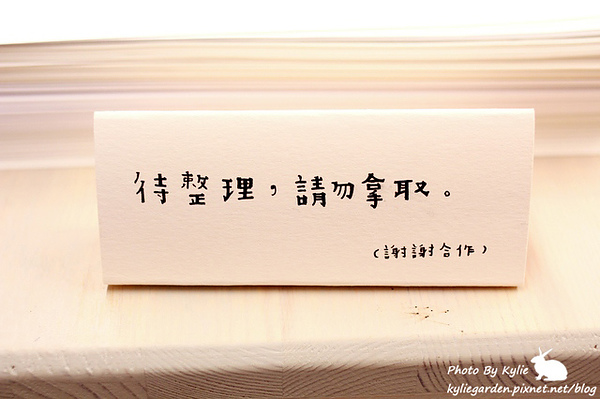 待整理，請勿拿取。
(謝謝合作)
Photo By Kylie
kyliegarden.pixnet.net/blog